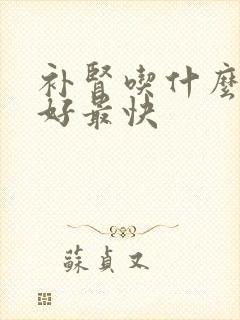 补腎喫什麼
好最快
蘇貞又